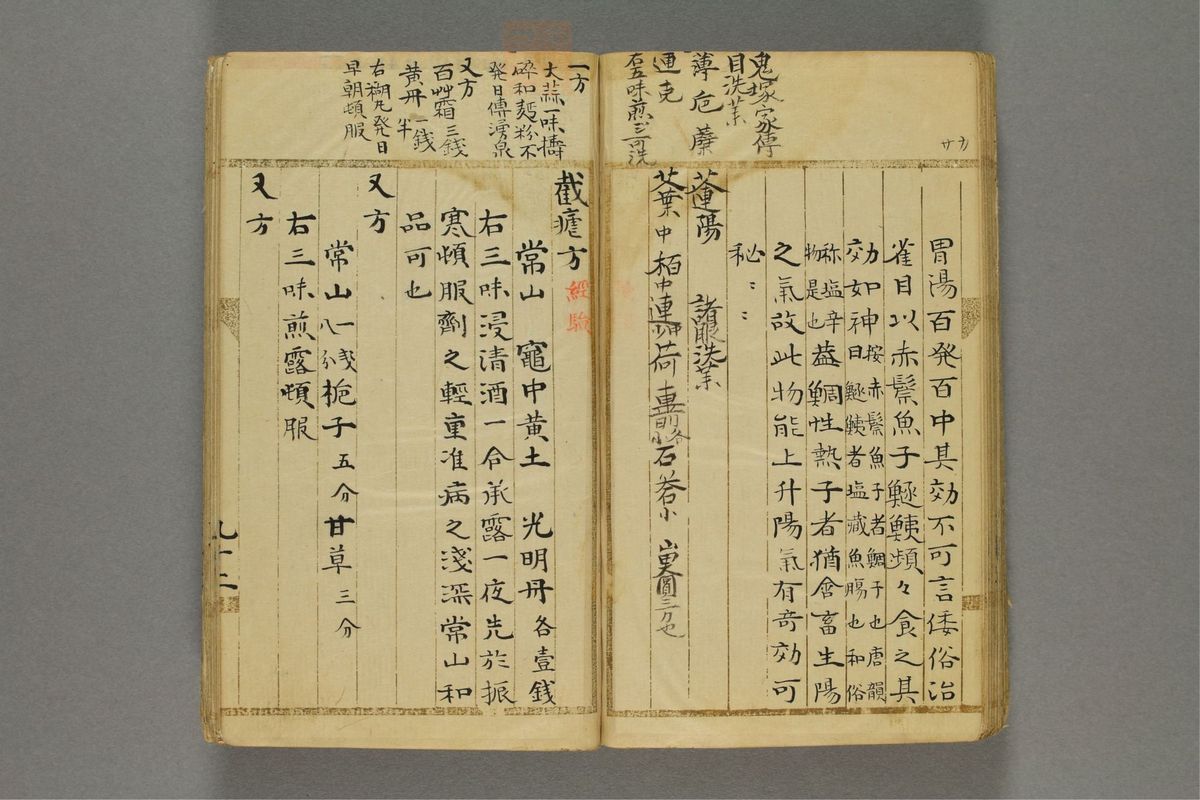 鬼塚家傳
目洗薬
右五味煎シ可洗
胃湯百発百中其効不可言倭俗治
雀目以赤鬃魚子鱁鮧頻々食之其
効如神曰按赤鬃魚子者鯛子也唐韻
鱁鮧者塩藏魚腸也和俗
称塩辛
物是也蓋鯛性熱子者猶含畜生陽
之氣故此物能上升陽氣有奇効可
秘〻〻
諸眼洗薬
一方
大蒜一味擣
碎和麺粉不
発日傅湧泉
又方
百艸霜三錢
黄丹一錢半
右糊丸発日
早朝頓服
截瘧方 經驗
常山 竈中黄土 光明丹各壹錢
右三味浸清酒一合承露一夜先於振
寒頓服劑之輕重准病之淺深常山和
品可也
又方
常山一戔八分 梔子五分 甘草三分
右三味煎露頓服
又方
九十二